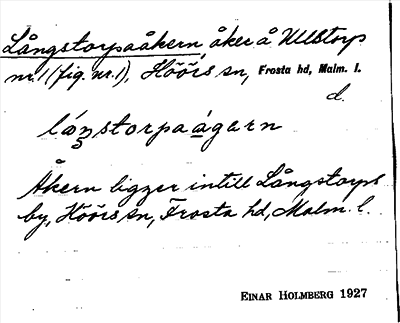 Långstorpaåkern, åker å Ullstorp
nr. 1 (fig. nr. 1), Höörs sn, Frosta hd, Malm. l.
d.
låŋstorpaågarn
Åkern ligger intill Långstorps
by, Höörs sn, Frosta hd, Malm. l.
EINAR HOLMBERG 1927